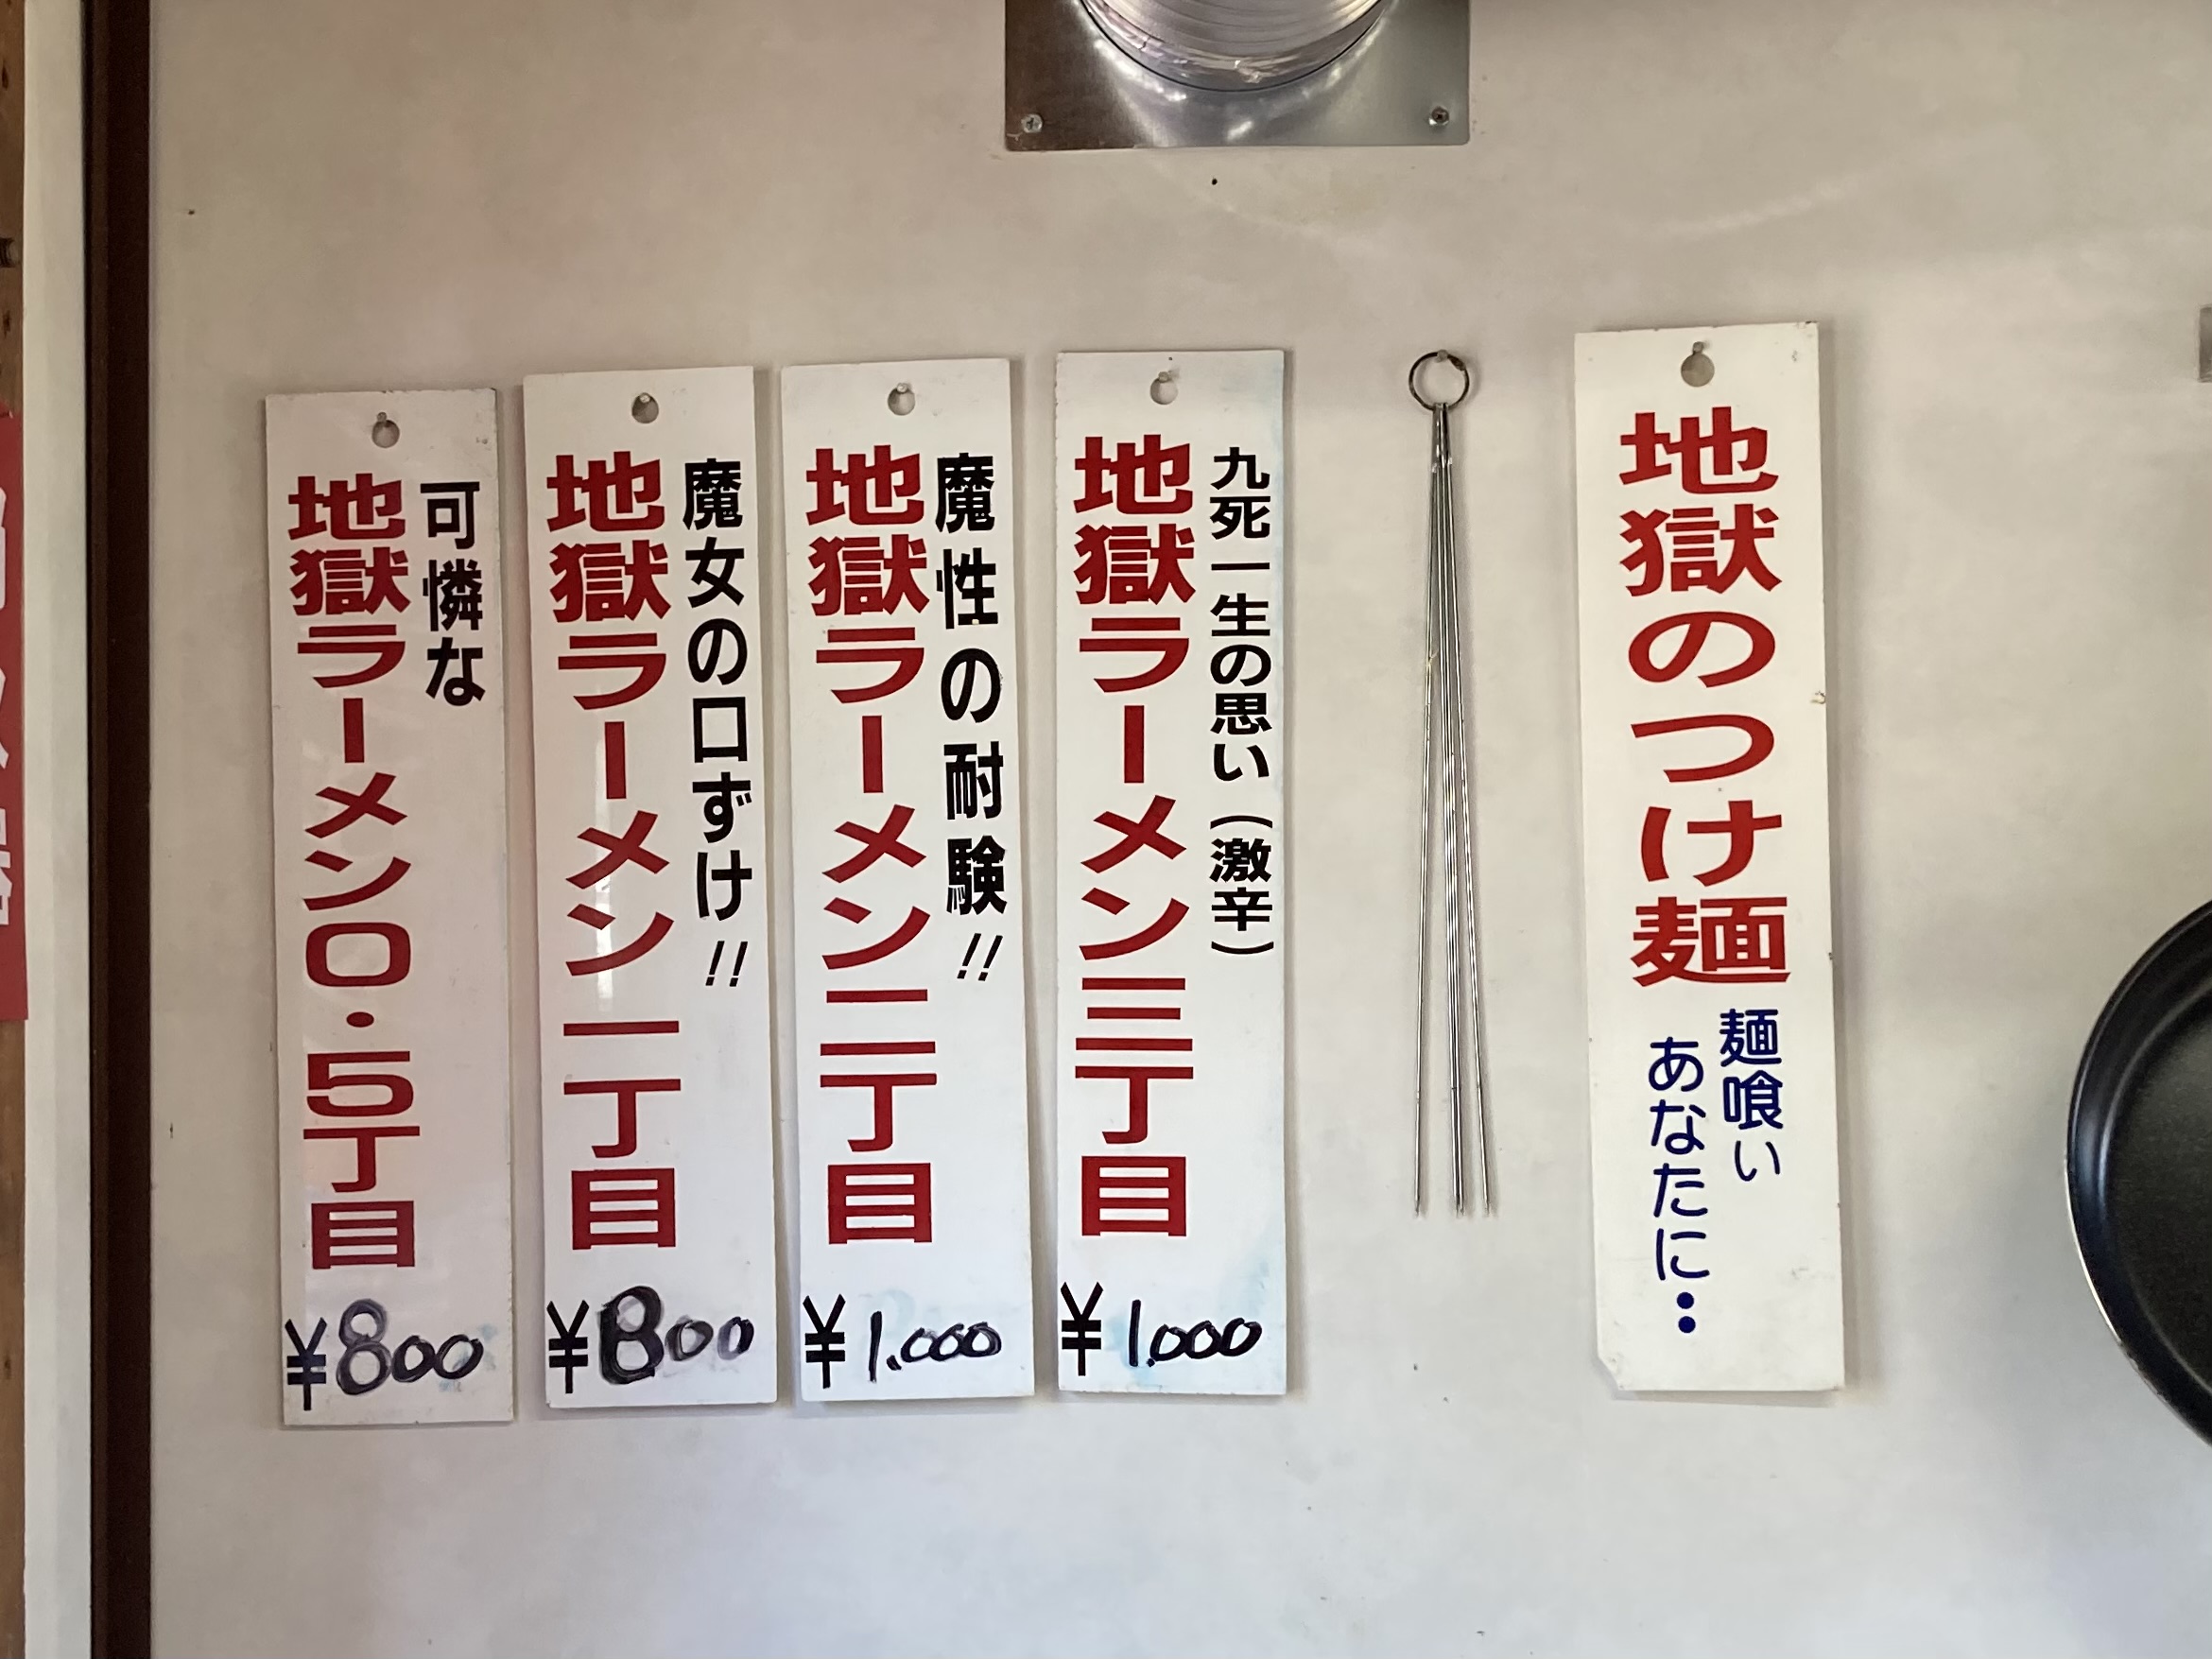 可憐な
地獄ラーメン0・5丁目
¥800
魔女の口ずけ!!
地獄ラーメン一丁目
¥800
魔性の耐験!!
地獄ラーメン二丁目
¥1.000
九死一生の思い(激辛)
地獄ラーメン三丁目
¥1.000
地獄のつけ麺
麺喰い
あなたに‥